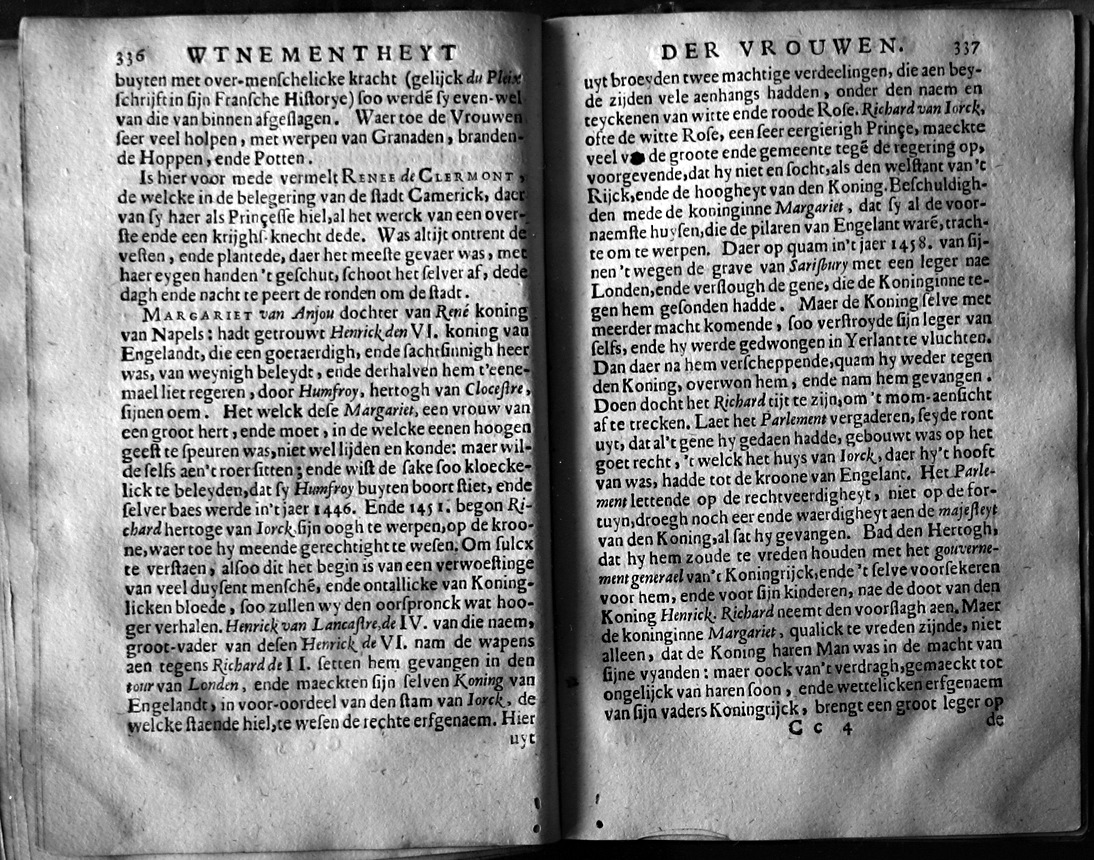 336 WTNEMENTHEYT
buyten met over-menſchelicke kracht (gelijck du Pleix
ſchrijft in ſijn Franſche Hiſtorye) ſoo werdẽ ſy even-wel
van die van binnen afgeſlagen. Waer toe de Vrouwen
ſeer veel holpen, met werpen van Granaden, branden-
de Hoppen, ende Potten.
Is hier voor mede vermelt RENEE de CLERMONT,
de welcke in de belegering van de ſtadt Camerick, daer
van ſy haer als Prinçeſſe hiel, al het werck van een over-
ſte ende een krijghſ-knecht dede. Was altijt ontrent de
veſten, ende plantede, daer het meeſte gevaer was, met
haer eygen handen 't geſchut, ſchoot het ſelver af, dede
dagh ende nacht te peert de ronden om de ſtadt.
MARGARIET van Anjou dochter van René koning
van Napels: hadt getrouwt Henrick den VI. koning van
Engelandt, die een goetaerdigh, ende ſachtſinnigh heer
was, van weynigh beleydt, ende derhalven hem t'eene-
mael liet regeren, door Humfroy, hertogh van Cloceſtre,
ſijnen oem. Het welck deſe Margariet, een vrouw van
een groot hert, ende moet, in de welcke eenen hoogen
geeſt te ſpeuren was, niet wel lijden en konde: maer wil-
de ſelfs aen't roer ſitten; ende wiſt de ſake ſoo kloecke-
lick te beleyden, dat ſy Humfroy buyten boort ſtiet, ende
ſelver baes werde in't jaer 1446. Ende 1451. begon Ri-
chard hertoge van Iorck ſijn oogh te werpen, op de kroo-
ne, waer toe hy meende gerechtight te weſen. Om ſulcx
te verſtaen, alſoo dit het begin is van een verwoeſtinge
van veel duyſent menſchẽ, ende ontallicke van Koning-
licken bloede, ſoo zullen wy den oorſpronck wat hoo-
ger verhalen. Henrick van Lancaſtre, de IV. van die naem,
groot-vader van deſen Henrick de VI. nam de wapens
aen tegens Richard de II. ſetten hem gevangen in den
tour van Londen, ende maeckten ſijn ſelven Koning van
Engelandt, in voor-oordeel van den ſtam van Iorck, de
welcke ſtaende hiel, te weſen de rechte erfgenaem. Hier
uyt
DER VROUWEN. 337
uyt broeyden twee machtige verdeelingen, die aen bey-
de zijden vele aenhangs hadden, onder den naem en
teyckenen van witte ende roode Roſe. Richard van Iorck,
ofte de witte Roſe, een ſeer eergierigh Prinçe, maeckte
veel de groote ende gemeente tegẽ de regering op,
voorgevende, dat hy niet en ſocht, als den welſtant van't
Rijck, ende de hoogheyt van den Koning. Beſchuldigh-
den mede de koninginne Margariet, dat ſy al de voor-
naemſte huyſen, die de pilaren van Engelant warẽ, trach-
te om te werpen. Daer op quam in't jaer 1458. van ſij-
nen 't wegen de grave van Sarisbury met een leger nae
Londen, ende verſlough de gene, die de Koninginne te-
gen hem geſonden hadde. Maer de Koning ſelve met
meerder macht komende, ſoo verſtroyde ſijn leger van
ſelfs, ende hy werde gedwongen in Yerlant te vluchten.
Dan daer na hem verſcheppende, quam hy weder tegen
den Koning, overwon hem, ende nam hem gevangen.
Doen docht het Richard tijt te zijn, om 't mom-aenſicht
af te trecken. Laet het Parlement vergaderen, ſeyde ront
uyt, dat al't gene hy gedaen hadde, gebouwt was op het
goet recht, 't welck het huys van Iorck, daer hy't hooft
van was, hadde tot de kroone van Engelant. Het Parle-
ment lettende op de rechtveerdigheyt, niet op de for-
tuyn, droegh noch eer ende waerdigheyt aen de majeſteyt
van den Koning, al ſat hy gevangen. Bad den Hertogh,
dat hy hem zoude te vreden houden met het gouverne-
ment generael van't Koningrijck, ende 't ſelve voorſekeren
voor hem, ende voor ſijn kinderen, nae de doot van den
Koning Henrick. Richard neemt den voorſlagh aen. Maer
de koninginne Margariet, qualick te vreden zijnde, niet
alleen, dat de Koning haren Man was in de macht van
ſijne vyanden: maer oock van't verdragh, gemaeckt tot
ongelijck van haren ſoon, ende wettelicken erfgenaem
van ſijn vaders Koningrijck, brengt een groot leger op
C c 4 de